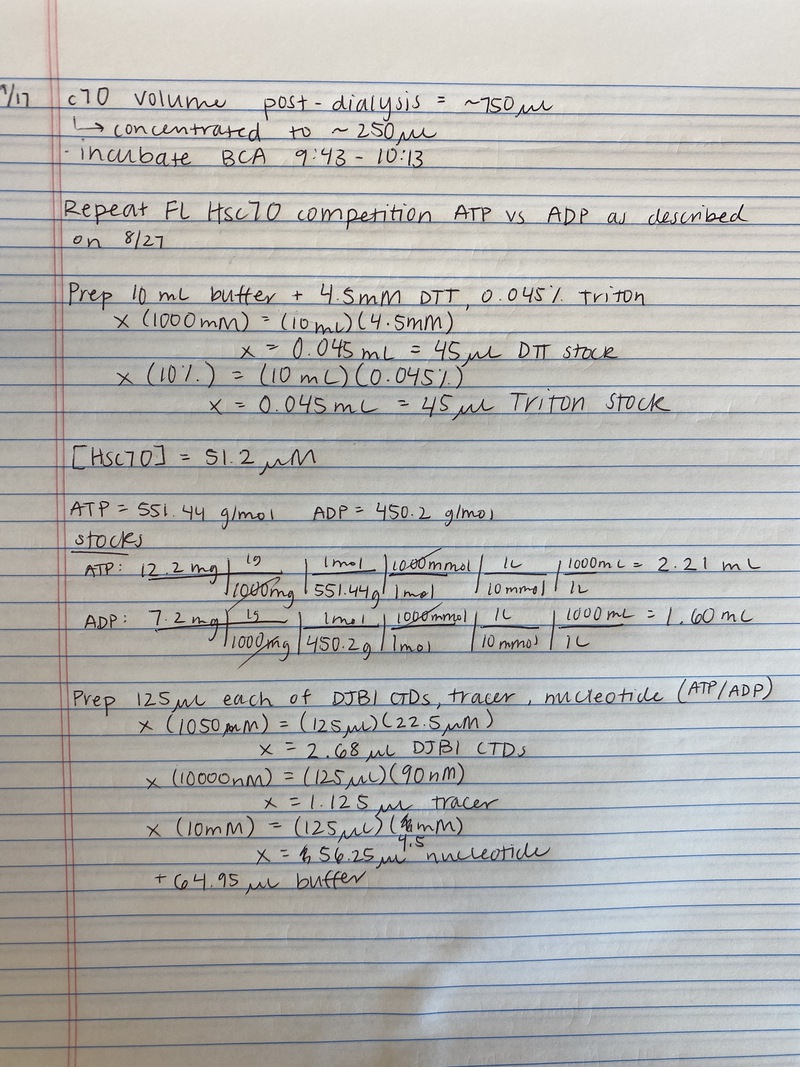 9/17 c70 volume post-dialysis = ~750 µL
↳ concentrated to ~250 µL
· incubate BCA 9:43 - 10:13
Repeat FL Hsc70 competition ATP vs ADP as described
on 8/27
Prep 10 mL buffer + 4.5mM DTT, 0.045% triton
x (1000mM) = (10mL)(4.5mM)
x = 0.045mL = 45µL DTT stock
x (10%) = (10mL)(0.045%)
x = 0.045mL = 45µL Triton stock
[Hsc70] = 51.2 µM
ATP = 551.44 g/mol ADP = 450.2 g/mol
stocks
ATP: 12.2mg | 1g | 1mol | 1000mmol | 1L | 1000mL = 2.21 mL
1000mg | 551.44g | 1mol | 10mmol | 1L
ADP: 7.2mg | 1g | 1mol | 1000mmol | 1L | 1000mL = 1.60 mL
1000mg | 450.2g | 1mol | 10mmol | 1L
Prep 125µL each of DJB1 CTDs, tracer, nucleotide (ATP/ADP)
x (1050µM) = (125µL)(22.5µM)
x = 2.68 µL DJB1 CTDs
x (10000nM) = (125µL)(90nM)
x = 1.125 µL tracer
x (10mM) = (125µL)(4.5mM)
x = 56.25µL nucleotide
+ 64.95 µL buffer